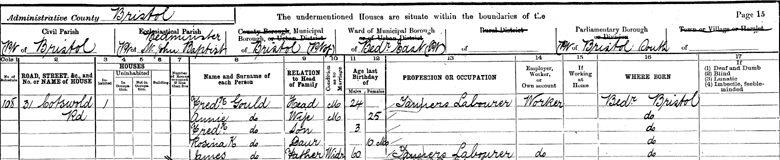 Administrative County Bristol
The undermentioned Houses are situate within the boundaries of the
Page 15
Civil Parish
of Bristol
Ecclesiastical Parish
Bedminster
of St. John Baptist
County Borough, Municipal Borough, or Urban District
of Bristol
Ward of Municipal Borough or of Urban District
of Bedr East
Rural District
Parliamentary Borough or Division
of Bristol South
Town or Village or Hamlet
Cols. 1 2 3 4 5 6 7 8 9 10 11 12 13 14 15 16 17
No. of Schedule
ROAD, STREET, &c., and No. or NAME of HOUSE
HOUSES
Inhabited
Uninhabited
In Occupation
Not in Occupation
Building
Name and Surname of each Person
RELATION to Head of Family
Condition as to Marriage
Age last Birthday of
Males
Females
PROFESSION OR OCCUPATION
Employer, Worker, or Own account
If Working at Home
WHERE BORN
(1) Deaf and Dumb
(2) Blind
(3) Lunatic
(4) Imbecile, feeble-minded
108 31 Cotswold Rd 1 Fredk Gould Head M 24 Tanners Labourer Worker Bedr Bristol
Annie do Wife M 25 do
Fredk do Son 3 do
Rosina K do Daur 10 mo do
James do Father Widr 60 Tanners Labourer do do